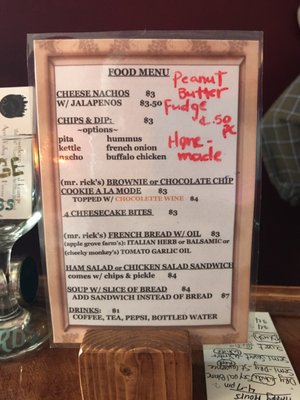 FOOD MENU
CHEESE NACHOS $3
W/ JALAPENOS $3.50
CHIPS & DIP: $3
~options~
pita hummus
kettle french onion
nacho buffalo chicken
Peanut
Butter
Fudge
4.50
PC
Home-
made
(mr. rick's) BROWNIE or CHOCOLATE CHIP
COOKIE A LA MODE $3
TOPPED W/ CHOCOLETTE WINE $4
4 CHEESECAKE BITES $3
(mr. rick's) FRENCH BREAD W/ OIL $3
(apple grove farm's): ITALIAN HERB or BALSAMIC or
(cheeky monkey's) TOMATO GARLIC OIL
HAM SALAD or CHICKEN SALAD SANDWICH
comes w/ chips & pickle $4
SOUP W/ SLICE OF BREAD $4
ADD SANDWICH INSTEAD OF BREAD $7
DRINKS: $1
COFFEE, TEA, PEPSI, BOTTLED WATER